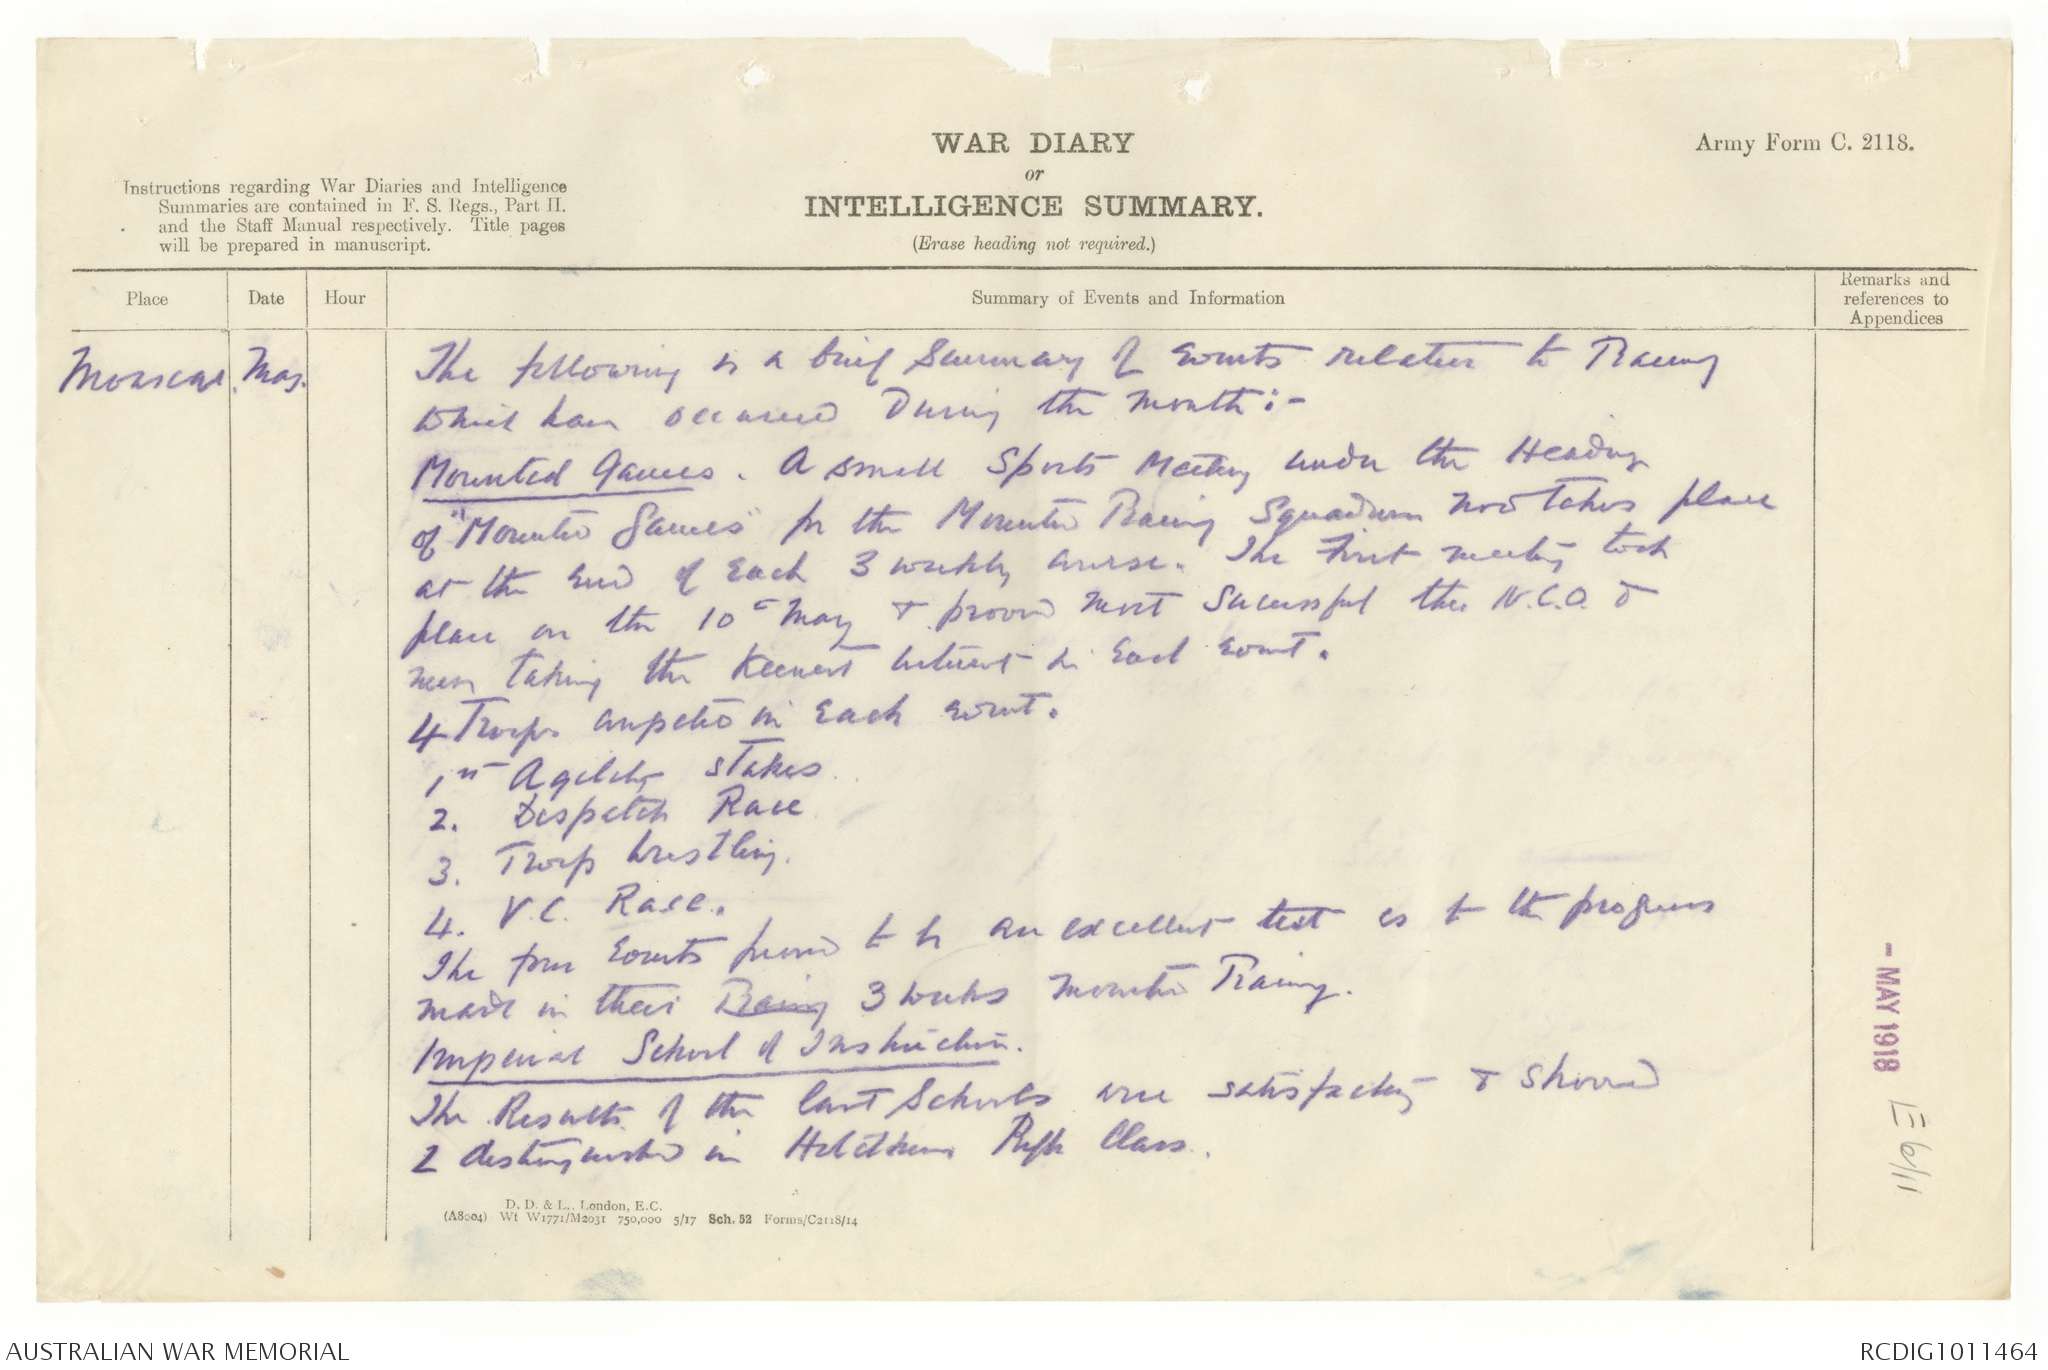 WAR DIARY
or
INTELLIGENCE SUMMARY.
(Erase heading not required.)
Army Form C. 2118.
Instructions regarding War Diaries and Intelligence
Summaries are contained in F. S. Regs., Part II.
and the Staff Manual respectively. Title pages
will be prepared in manuscript.
Place
Date
Hour
Summary of Events and Information
Remarks and
references to
Appendices
Moascar. May.
The following is a brief Summary of events relative to Training
which have occurred During the month:-
Mounted Games. A small Sports Meeting under the Heading
of "Mounted Games" for the Mounted Training Squadron now takes place
at the end of each 3 weekly course. The First meeting took
place on the 10th May & proved most successful the N.C.O. &
men taking the keenest interest in each event.
4 Troops competed in each event.
1st Agility Stakes.
2. Despatch Race
3. Troop Wrestling.
4. V.C. Race.
The four events proved to be an excellent test as to the progress
made in their Training 3 weeks mounted Training.
Imperial School of Instruction.
The Results of the last Schools were satisfactory & showed
2 distinguished in Hotchkiss Rifle Class.
- MAY 1918
E 6/11
D. D. & L., London, E.C.
(A8004) Wt W1771/M2031 750,000 5/17 Sch. 52 Forms/C2118/14
AUSTRALIAN WAR MEMORIAL
RCDIG1011464